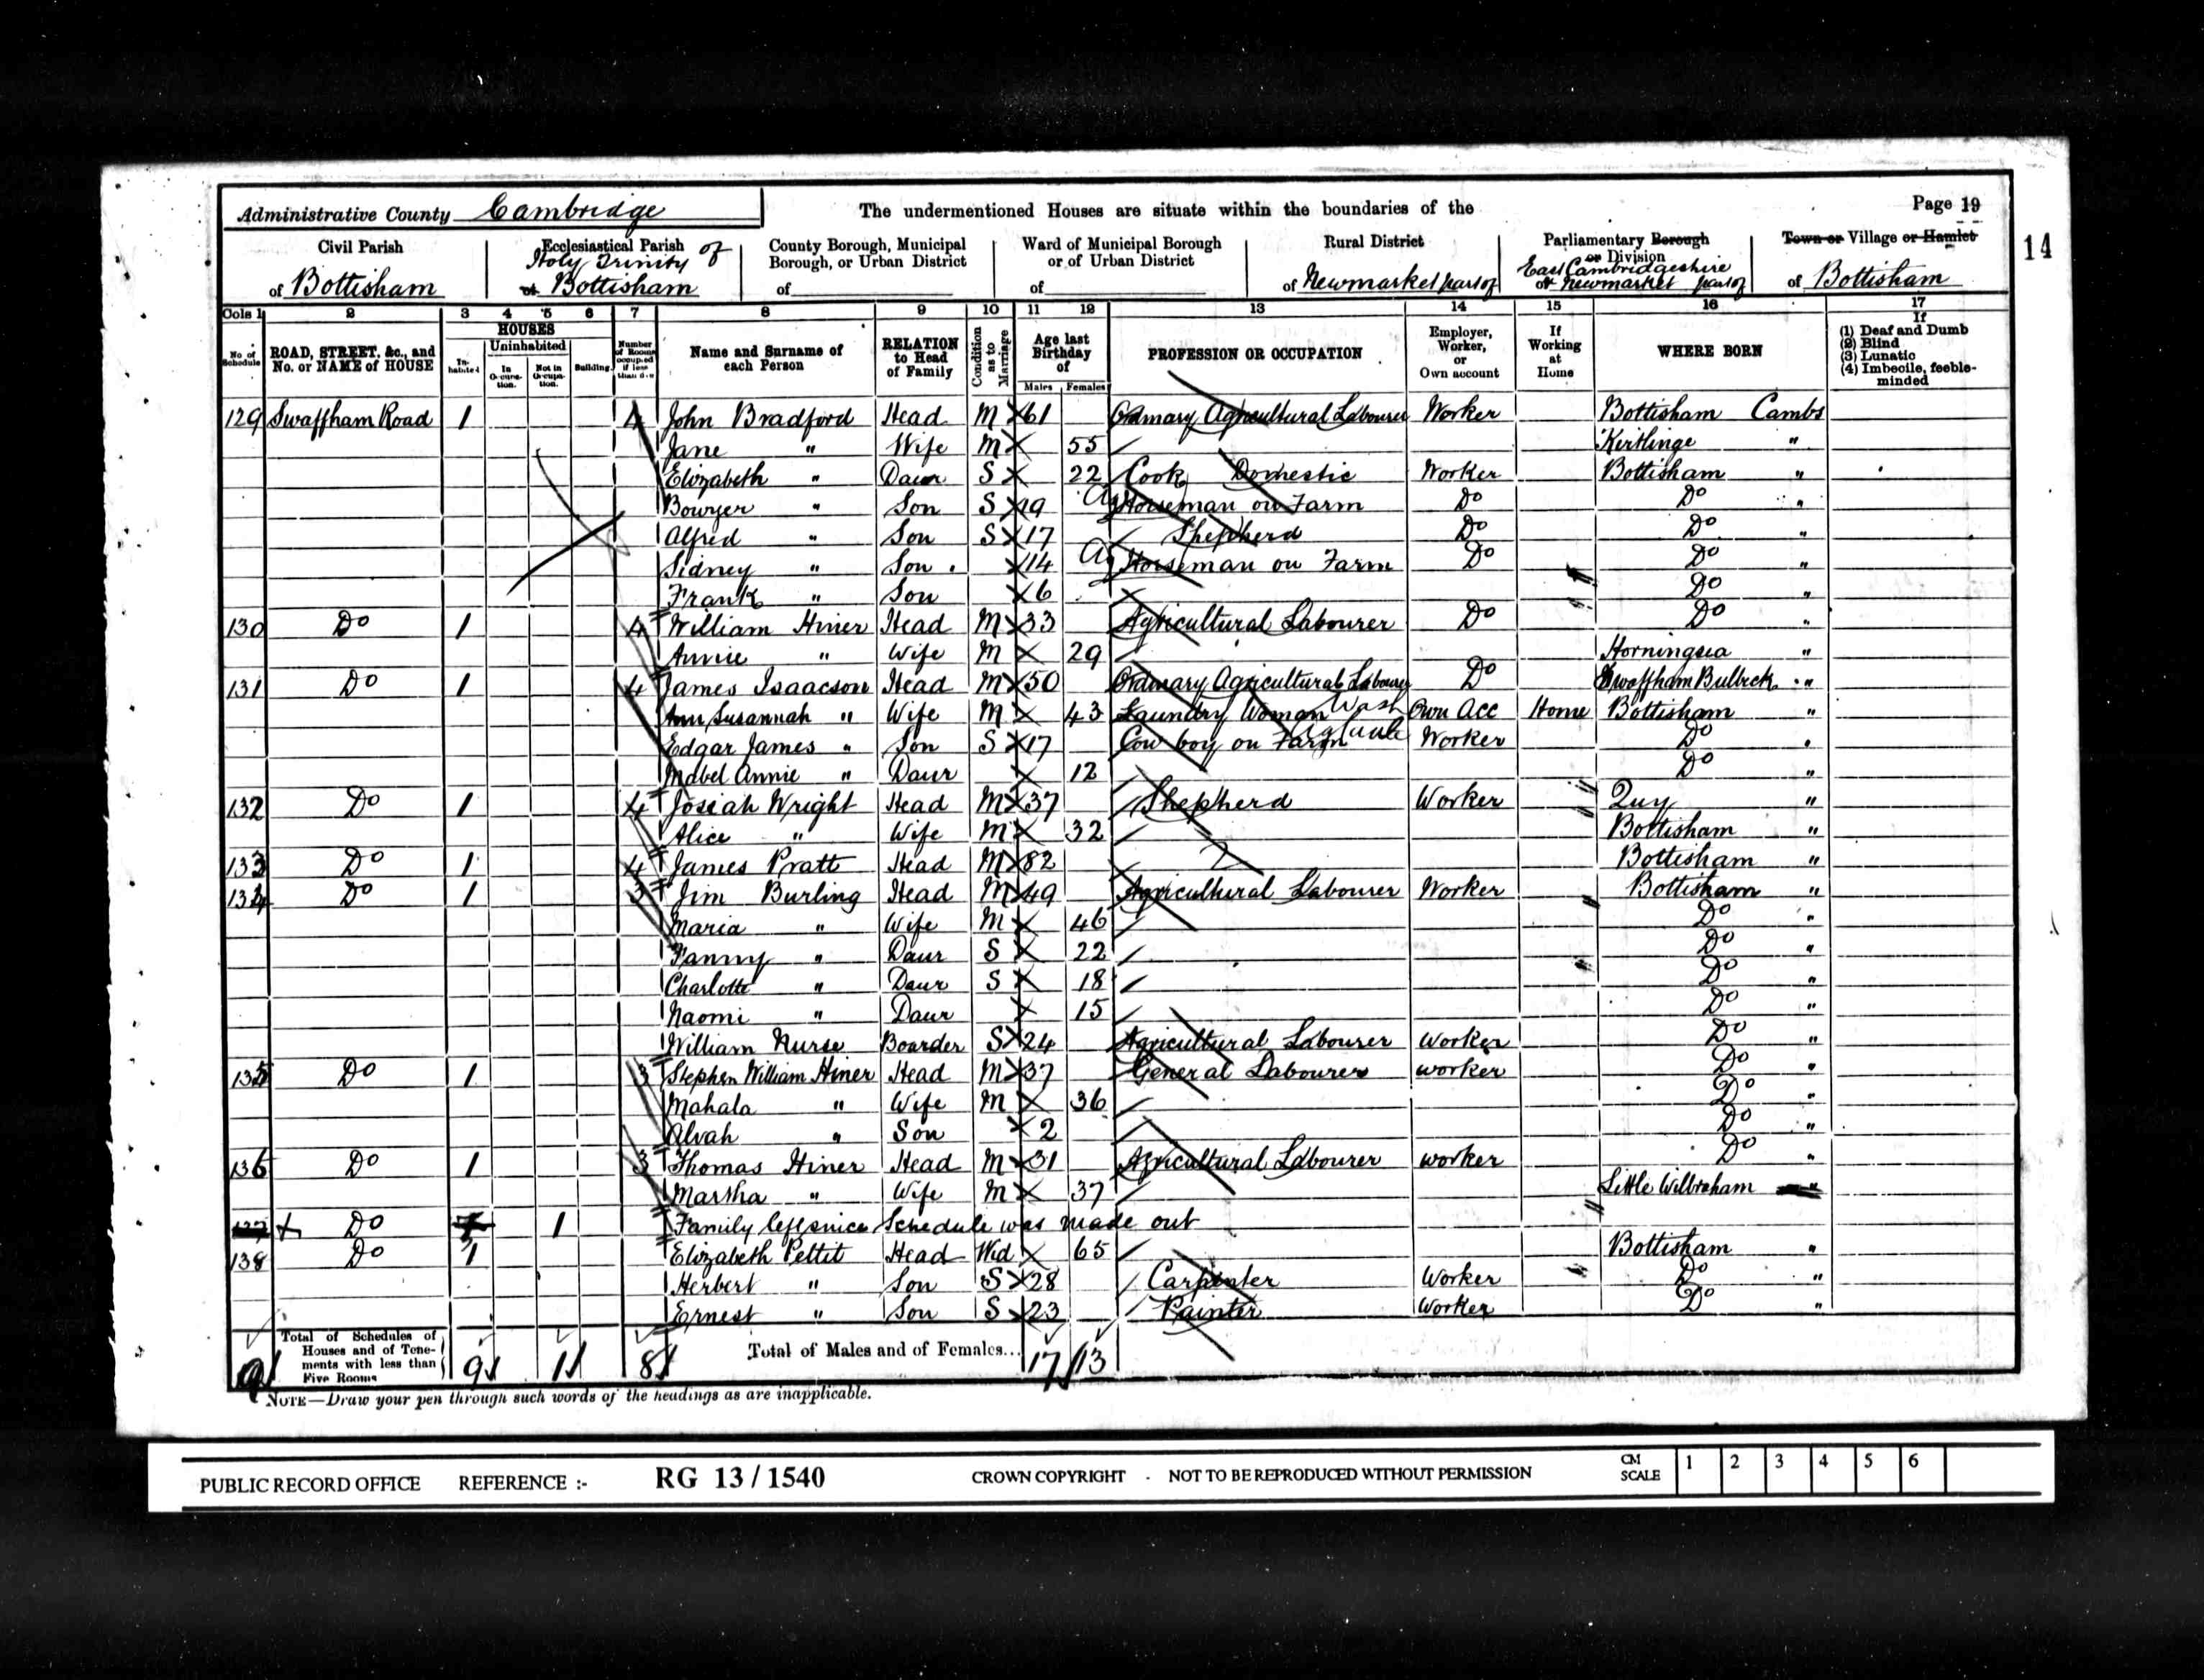 Administrative County Cambridge The undermentioned Houses are situate within the boundaries of the Page 19
14
Civil Parish of Bottisham
Ecclesiastical Parish of Holy Trinity of Bottisham
County Borough, Municipal Borough, or Urban District of
Ward of Municipal Borough or of Urban District of
Rural District of Newmarket part of
Parliamentary Borough or Division of East Cambridgeshire or Newmarket part of
Town or Village or Hamlet of Bottisham
Cols 1 2 3 4 5 6 7 8 9 10 11 12 13 14 15 16 17
No. of Schedule
ROAD, STREET, &c., and No. or NAME of HOUSE
HOUSES
Inhabited
Uninhabited
In Occupation.
Not in Occupation.
Building.
Number of Rooms occupied if less than five
Name and Surname of each Person
RELATION to Head of Family
Condition as to Marriage
Age last Birthday of
Males Females
PROFESSION OR OCCUPATION
Employer, Worker, or Own account
If Working at Home
WHERE BORN
If
(1) Deaf and Dumb
(2) Blind
(3) Lunatic
(4) Imbecile, feeble-minded
129 Swaffham Road 1 4 John Bradford Head M 61 Ordinary Agricultural Labourer Worker Bottisham Cambs
Jane " Wife M 55 Kirtlinge "
Elizabeth " Daur S 22 Cook Domestic Worker Bottisham "
Bowyer " Son S 19 Ag Horseman on Farm Do Do "
Alfred " Son S 17 Shepherd Do Do "
Sidney " Son 14 Ag Horseman on Farm Do Do "
Frank " Son 6 Do "
130 Do 1 4 William Hiner Head M 33 Agricultural Labourer Do Do "
Annie " Wife M 29 Horningsea "
131 Do 1 4 James Isaacson Head M 50 Ordinary Agricultural Labourer Do Swaffham Bulbeck "
Ann Susannah " Wife M 43 Laundry Woman Wash Own Acc Home Bottisham "
Edgar James " Son S 17 Cow boy on Farm Worker Do "
Mabel Annie " Daur 12 Do "
132 Do 1 4 Josiah Wright Head M 37 Shepherd Worker Quy "
Alice " Wife M 32 Bottisham "
133 Do 1 4 James Pratt Head M 82 Bottisham "
134 Do 1 3 Jim Burling Head M 49 Agricultural Labourer Worker Bottisham "
Maria " Wife M 46 Do "
Fanny " Daur S 22 Do "
Charlotte " Daur S 18 Do "
Naomi " Daur 15 Do "
William Nurse Boarder S 24 Agricultural Labourer Worker Do "
135 Do 1 3 Stephen William Hiner Head M 37 General Labourer worker Do "
Mahala " Wife M 36 Do "
Alvah " Son 2 Do "
136 Do 1 3 Thomas Hiner Head M 31 Agricultural Labourer worker Do "
Martha " Wife M 37 Little Wilbraham "
137 Do 1 Family left since Schedule was made out
138 Do 1 Elizabeth Pettit Head Wid 65 Bottisham "
Herbert " Son S 28 Carpenter Worker Do "
Ernest " Son S 23 Painter Worker Do "
9 Total of Schedules of Houses and of Tenements with less than Five Rooms 9 1 8 Total of Males and of Females... 17 13
NOTE—Draw your pen through such words of the headings as are inapplicable.
PUBLIC RECORD OFFICE REFERENCE :- RG 13 / 1540 CROWN COPYRIGHT - NOT TO BE REPRODUCED WITHOUT PERMISSION CM SCALE 1 2 3 4 5 6